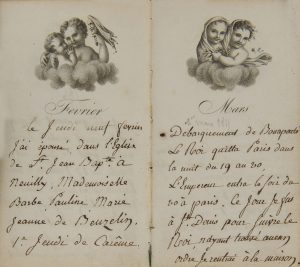 Février
le Jeudi neuf fevrier
j'ai épousé dans l'Eglise
de St. Jean Bapte. à
Neuilly, Mademoiselle
Barbe Pauline Marie
Jeanne de Beuzelin.
1er Jeudi de Carême.
Mars
Debarquement de Bonaparte
Le Roi quitte Paris dans
la nuit du 19 au 20.
L'Empereur entra le soir du
20 à paris. Ce Jour je fus
à St. Denis pour suivre le
Roi, n'ayant trouvé aucun
ordre Je rentrai à la maison